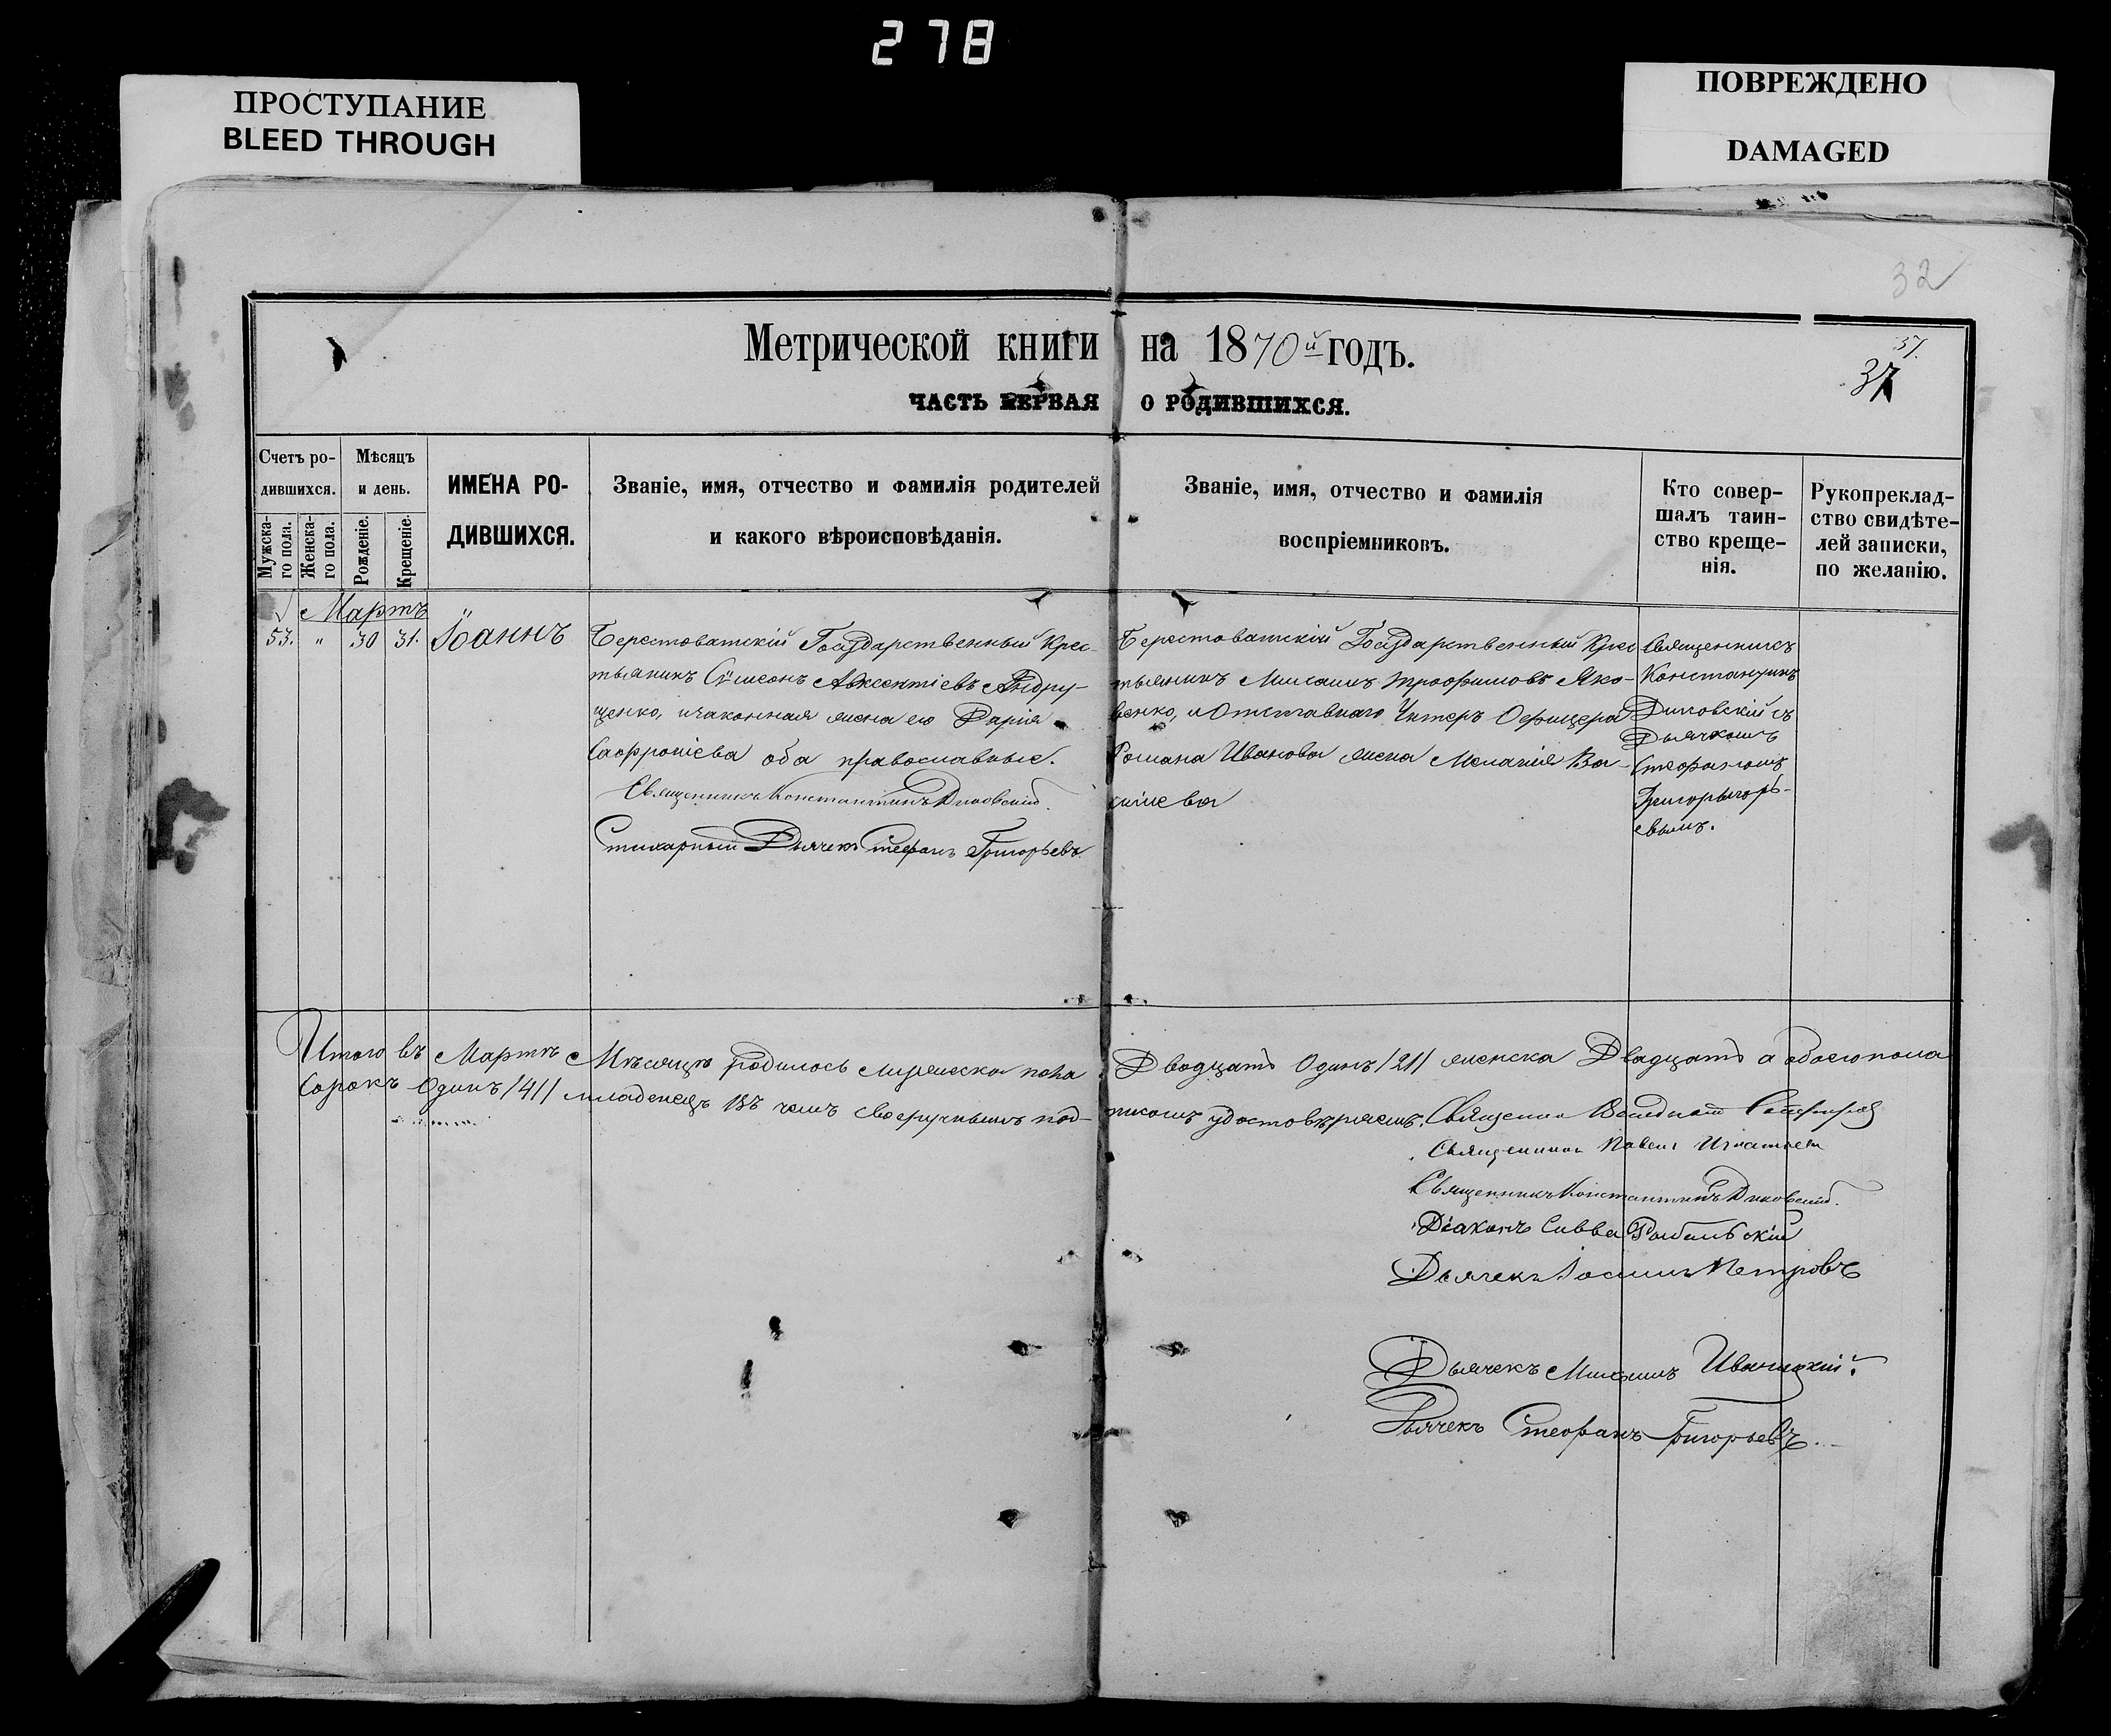 278
ПРОСТУПАНИЕ
BLEED THROUGH
ПОВРЕЖДЕНО
DAMAGED
32
Метрической книги на 1870й годъ.
37.
37
ЧАСТЬ ПЕРВАЯ О РОДИВШИХСЯ.
Счетъ ро-
дившихся.
Мужска-
го пола.
Женска-
го пола.
Мѣсяцъ
и день.
Рожденіе.
Крещеніе.
ИМЕНА РО-
ДИВШИХСЯ.
Званіе, имя, отчество и фамилія родителей
и какого вѣроисповѣданія.
Званіе, имя, отчество и фамилія
воспріемниковъ.
Кто совер-
шалъ таин-
ство креще-
нія.
Рукоприклад-
ство свидѣте-
лей записки,
по желанію.
Мартъ
53. " 30 31. Іоаннъ
Берестоватскій Государственный Крес-
тьянинъ Сѵмеонъ Авксентіевъ Андру-
щенко, и законная жена его Дарія
Саофроніева оба православные.
Священникъ Константинъ Диковскій.
Стихарный Дьячекъ Стефанъ Григорьевъ.
Берестоватскій Государственный Крес
тьянинъ Михаилъ Трофимовъ Яко-
венко, и Отставнаго Унтеръ Офицера
Романа Иванова жена Меланія Ва-
силіева
Священникъ
Константинъ
Диковскій съ
Дьячкомъ
Стефаномъ
Григорьгорь-
евымъ.
Итого въ Мартѣ Мѣсяцѣ родилось мужеска пола Двадцать Одинъ /21/ женска Двадцать а обоего пола
Сорокъ Одинъ /41/ младенецъ въ чемъ своеручнымъ под- писомъ удостовѣряемъ. Священник
Священникъ Павелъ Игнатьев
Священникъ Константинъ Диковскій.
Діаконъ Савва
Дьячекъ Іоаннъ Петровъ
Дьячекъ Михаилъ Иваницкій.
Дьячекъ Стефанъ Григорьевъ.